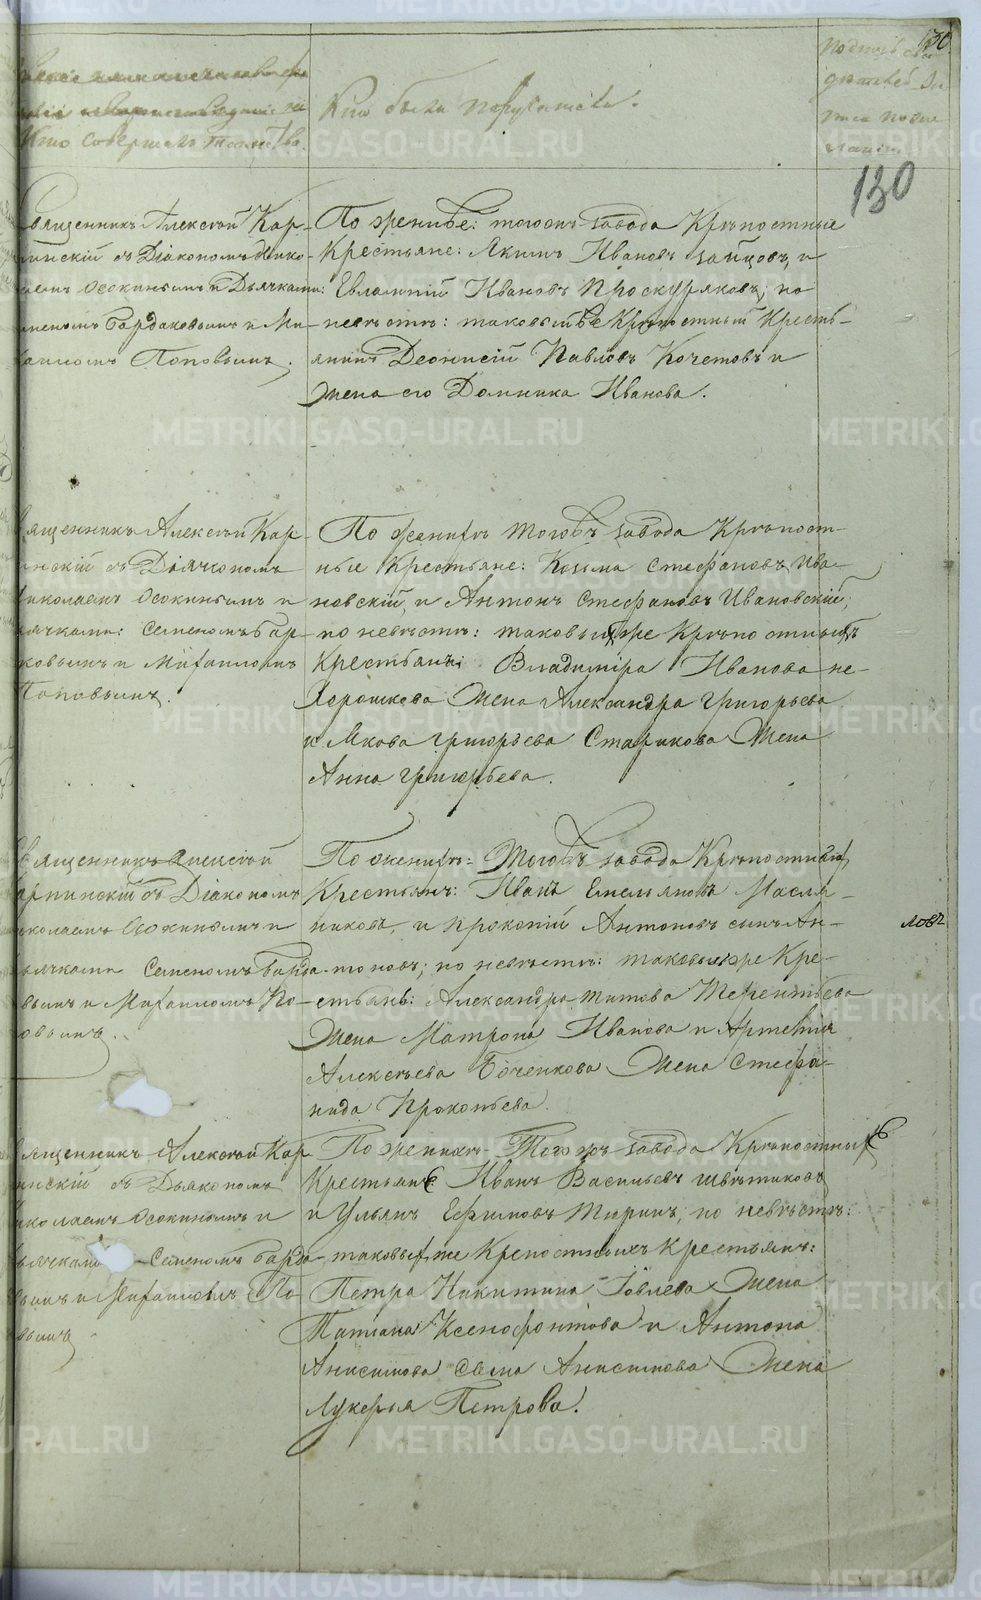 130
Кто совершалъ таинство.
Кто были поручители.
Подпись сви
дѣтелей за
писи по же
ланію
130
Священникъ Алексѣй Кар-
пинскій съ Діакономъ Нико-
лаемъ Осокинымъ и Дьячками:
Семеномъ Бардаковымъ и Ми-
хаиломъ Поповымъ.
По женихѣ: тогожъ завода Крѣпостные
Крестьяне: Якимъ Ивановъ Зайцовъ, и
Евлампій Ивановъ Проскуряковъ; по
невѣстѣ: таковыйже Крѣпостный Кресть-
янинъ Деонисій Павловъ Кочетовъ и
жена его Домника Иванова.
Священникъ Алексѣй Кар-
пинскій съ Діячкономъ
Николаемъ Осокинымъ и
дьячками: Семеномъ Бар-
ковымъ и Михаиломъ
Поповымъ.
По женихѣ тогожъ завода Крѣпост-
ные Крестьяне: Козьма Стефановъ Ива-
новскій, и Антонъ Стефановъ Ивановскій;
по невѣстѣ: таковыхже Крѣпостныхъ
Крестьянъ: Владиміра Иванова Не-
хорошкова жена Александра Григорьева
и Якова Григорьева Старикова жена
Анна Григорьева.
Священникъ Алексѣй
Карпинскій съ Діакономъ
Николаемъ Осокинымъ и
дьячками Семеномъ Барда
вымъ и Михаиломъ По-
повымъ.
По женихѣ: тогожъ завода Крѣпостный
Крестьянъ: Иванъ Емельяновъ Масля-
никовъ, и Прокопій Антоновъ сынъ Ан-
ловъ
тоновъ; по невѣстѣ: таковыхже Кре-
стьянъ: Александра Титова Терентьева
жена Матрона Иванова и Артемія
Алексѣева Боченкова жена Стефа-
нида Прокопьева.
Священникъ Алексѣй Кар
пинскій съ Дьякономъ
Николаемъ Осокинымъ и
дьячками Семеномъ Барда
вымъ и Михаиломъ По
повымъ
По женихѣ тогожъ завода Крѣпостные
Крестьяне Иванъ Васильевъ Цвѣтиковъ
и Ульянъ Ефимовъ Тиринъ, по невѣстѣ:
таковыхже Крепостныхъ Крестьянъ:
Петра Никитина Іовлева жена
Татіана Ксенофонтова и Антона
Анисимова сына Анисимова жена
Лукерья Петрова.
METRIKI.GASO-URAL.RU